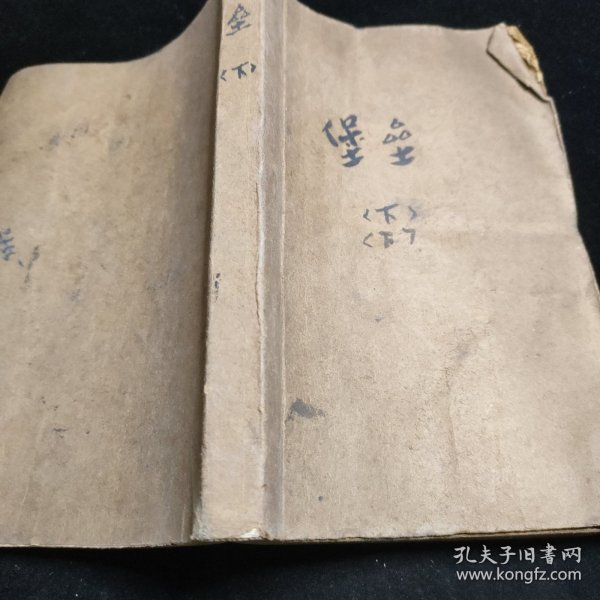 垒
(下)
堡垒
(下)
(下)
孔夫子旧书网
www.kongfz.com